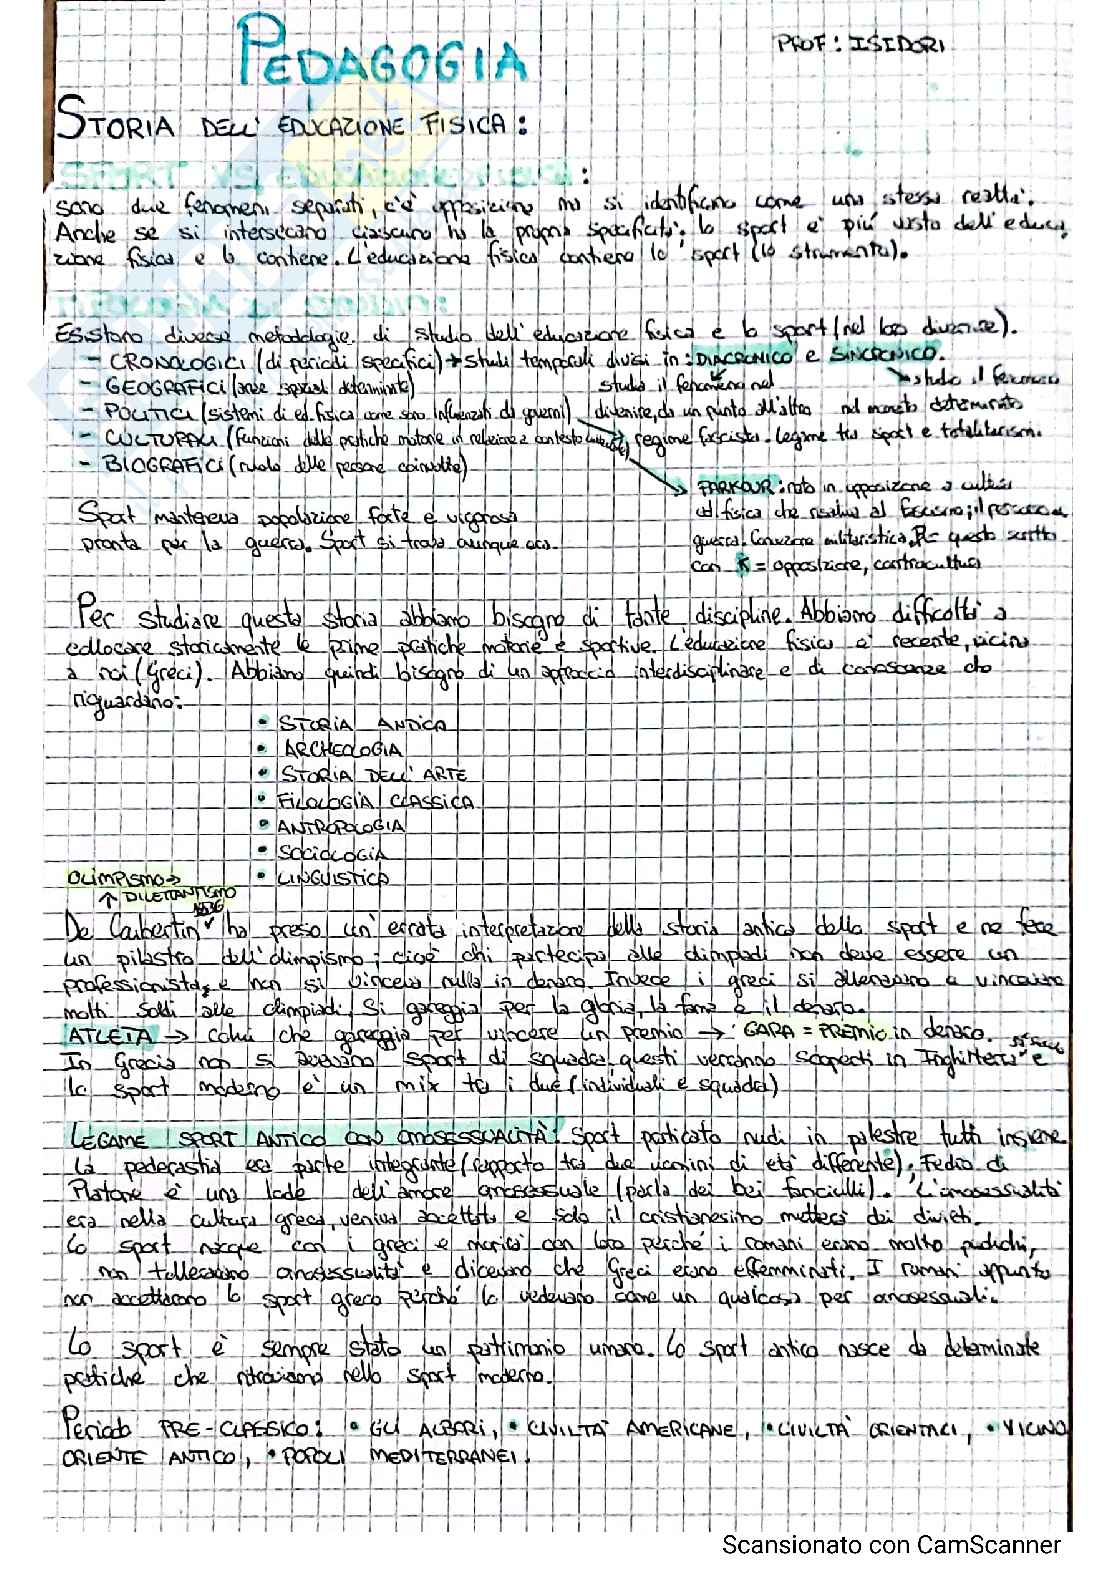 PEDAGOGIA
PROF: ISIDORI
STORIA DELL'EDUCAZIONE FISICA:
SPORT VS EDUCAZIONE FISICA:
sono due fenomeni separati, c'è opposizione ma si identificano come una stessa realtà.
Anche se si intersecano ciascuno ha la propria specificità: lo sport è più vasto dell'educa
zione fisica e la contiene. L'educazione fisica contiene lo sport (lo strumento).
Esistono diverse metodologie di studio dell'educazione fisica e lo sport (nel loro divenire).
- CRONOLOGICI (di periodi specifici) → studi temporali divisi in: DIACRONICO e SINCRONICO.
- GEOGRAFICI (aree spaziali determinate) studia il fenomeno nel → studio il fenomeno
- POLITICI (sistemi di ed. fisica come sono influenzati da governi) divenire, da un punto all'altro nel momento determinato
- CULTURALI (funzioni delle pratiche motorie in relazione a contesto) regime fascista. Legame tra sport e totalitarismi.
- BIOGRAFICI (ruolo delle persone coinvolte)
PARKOUR: nato in opposizione a cultura
Sport manteneva popolazione forte e vigorosa ed. fisica che risaliva al fascismo;
pronta per la guerra. Sport si trova ovunque ora. guerra. Concezione militaristica. questo scritto
con K = opposizione, controcultura
Per studiare questa storia abbiamo bisogno di tante discipline. Abbiamo difficoltà a
collocare storicamente le prime pratiche motorie e sportive. L'educazione fisica è recente, vicina
a noi (Greci). Abbiamo quindi bisogno di un approccio interdisciplinare e di conoscenze che
riguardano:
• STORIA ANTICA
• ARCHEOLOGIA
• STORIA DELL'ARTE
• FILOLOGIA CLASSICA
• ANTROPOLOGIA
• SOCIOLOGIA
• LINGUISTICA
OLIMPISMO →
↑ DILETTANTISMO
De Coubertin ha preso un'errata interpretazione della storia antica dello sport e ne fece
un pilastro dell'olimpismo; cioè chi partecipa alle olimpiadi non deve essere un
professionista, e non si vinceva nulla in denaro. Invece i greci si allenavano e vincevano
molti soldi alle olimpiadi. Si gareggia per la gloria, la fama e il denaro.
ATLETA → colui che gareggia per vincere un premio → GARA = PREMIO in denaro.
In Grecia non si avevano sport di squadra; questi verranno scoperti in Inghilterra e
lo sport moderno è un mix tra i due (individuali e squadra)
LEGAME SPORT ANTICO CON OMOSESSUALITÀ: Sport praticato nudi in palestre tutti insieme
La pederastia era parte integrante (rapporto tra due uomini di età differente). Fedro di
Platone è una lode dell'amore omosessuale (parla dei bei fanciulli). L'omosessualità
era nella cultura greca, veniva accettata e solo il cristianesimo metterà dei divieti.
Lo sport nacque con i greci e morirà con loro perché i romani erano molto pudichi,
non tolleravano omosessualità e dicevano che Greci erano effemminati. I romani appunto
non accettarono lo sport greco perché lo vedevano come un qualcosa per omosessuali.
Lo sport è sempre stato un patrimonio umano. Lo sport antico nasce da determinate
pratiche che ritroviamo nello sport moderno.
Periodo PRE-CLASSICO: • GLI ALBORI, • CIVILTÀ AMERICANE, • CIVILTÀ ORIENTALI, • VICINO
ORIENTE ANTICO, • POPOLI MEDITERRANEI.
Scansionato con CamScanner